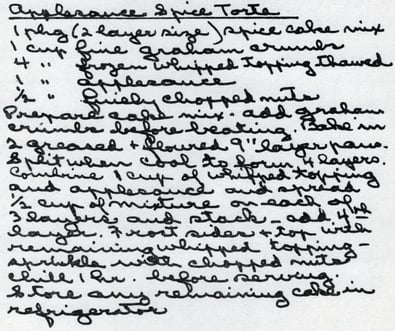 Applesauce Spice Torte
1 pkg (2 layer size) spice cake mix
1 cup fine graham crumbs
4 " frozen whipped topping thawed
1 " applesauce
1/2 " finely chopped nuts
Prepare cake mix - add graham
crumbs before beating. Bake in
2 greased + floured 9" layer pans.
Split when cool to form 4 layers.
Combine 1 cup of whipped topping
and applesauce and spread
1/2 cup of mixture on each of
3 layers and stack - add 4th
layer. Frost sides + top with
remaining whipped topping -
sprinkle with chopped nuts
chill 1 hr. before serving.
Store any remaining cake in
refrigerator